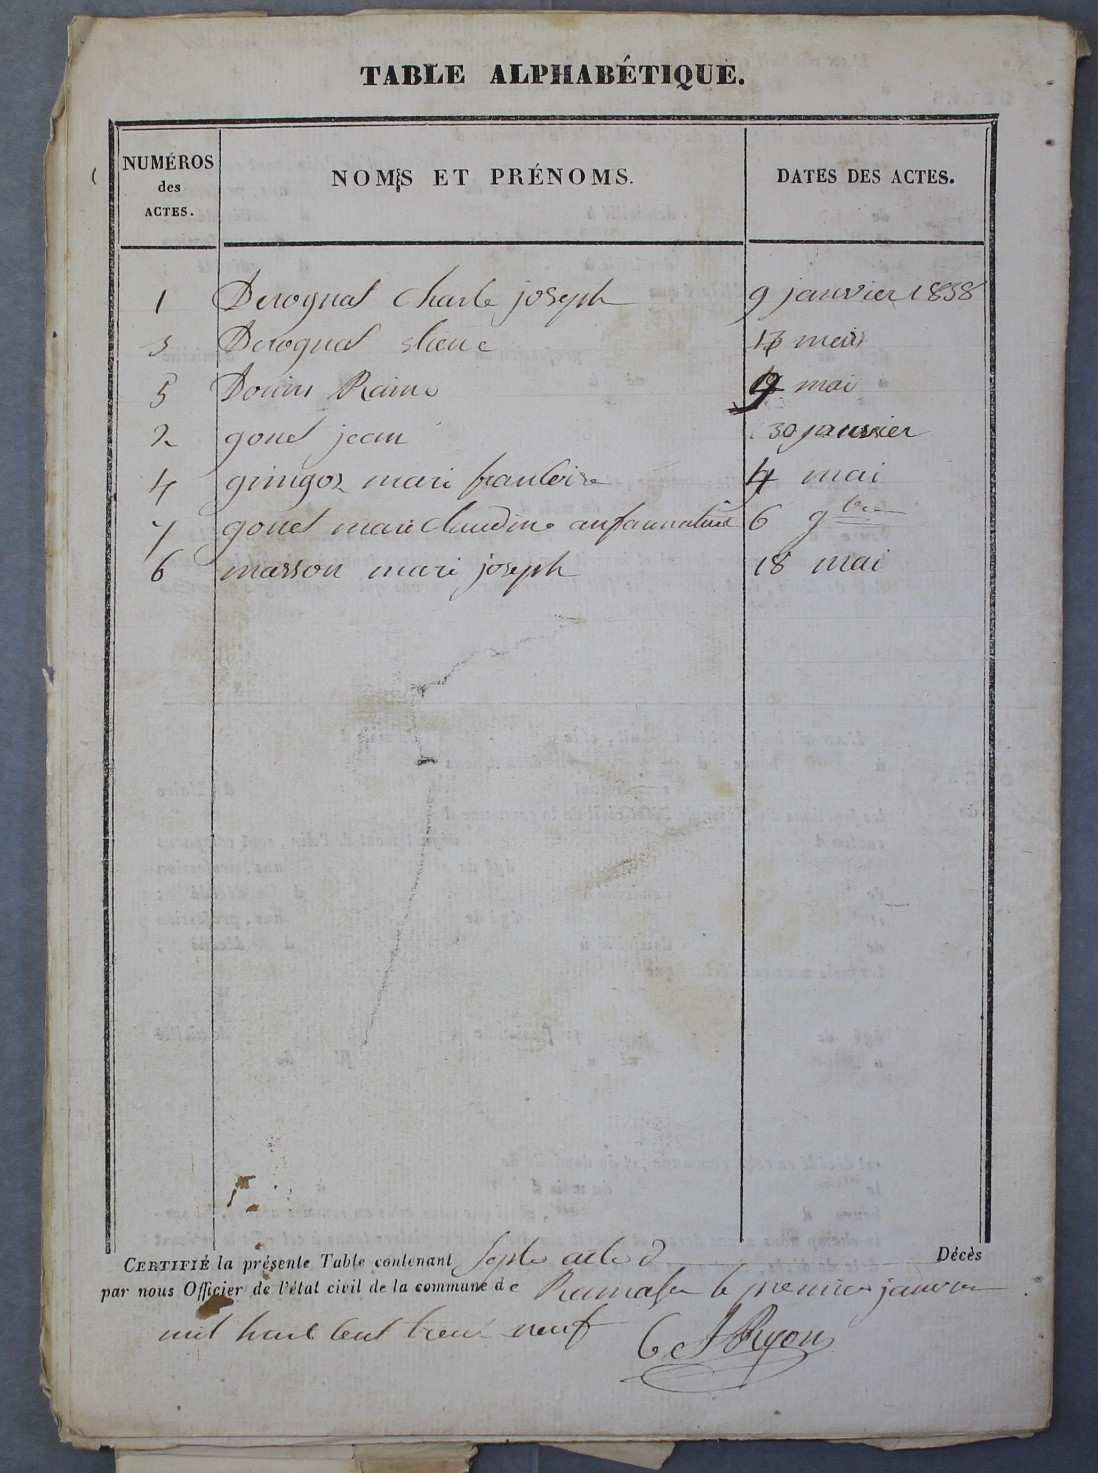 TABLE ALPHABÉTIQUE.
NUMÉROS des ACTES.
NOMS ET PRÉNOMS.
DATES DES ACTES.
1 Derognat Charle joseph 9 janvier 1838
3 Derognat 13 mars
5 Donin 9 mai
2 gonet jean 30 janvier
4 gringoz mari franloise 4 mai
7 gonet mari Claudine anfannaturel 6 9bre
6 masson mari joseph 18 mai
CERTIFIÉ la présente Table contenant septe acte d Décès
par nous Officier de l'état civil de la commune de Ramasse le premier janvier
mil huit cent trente neuf